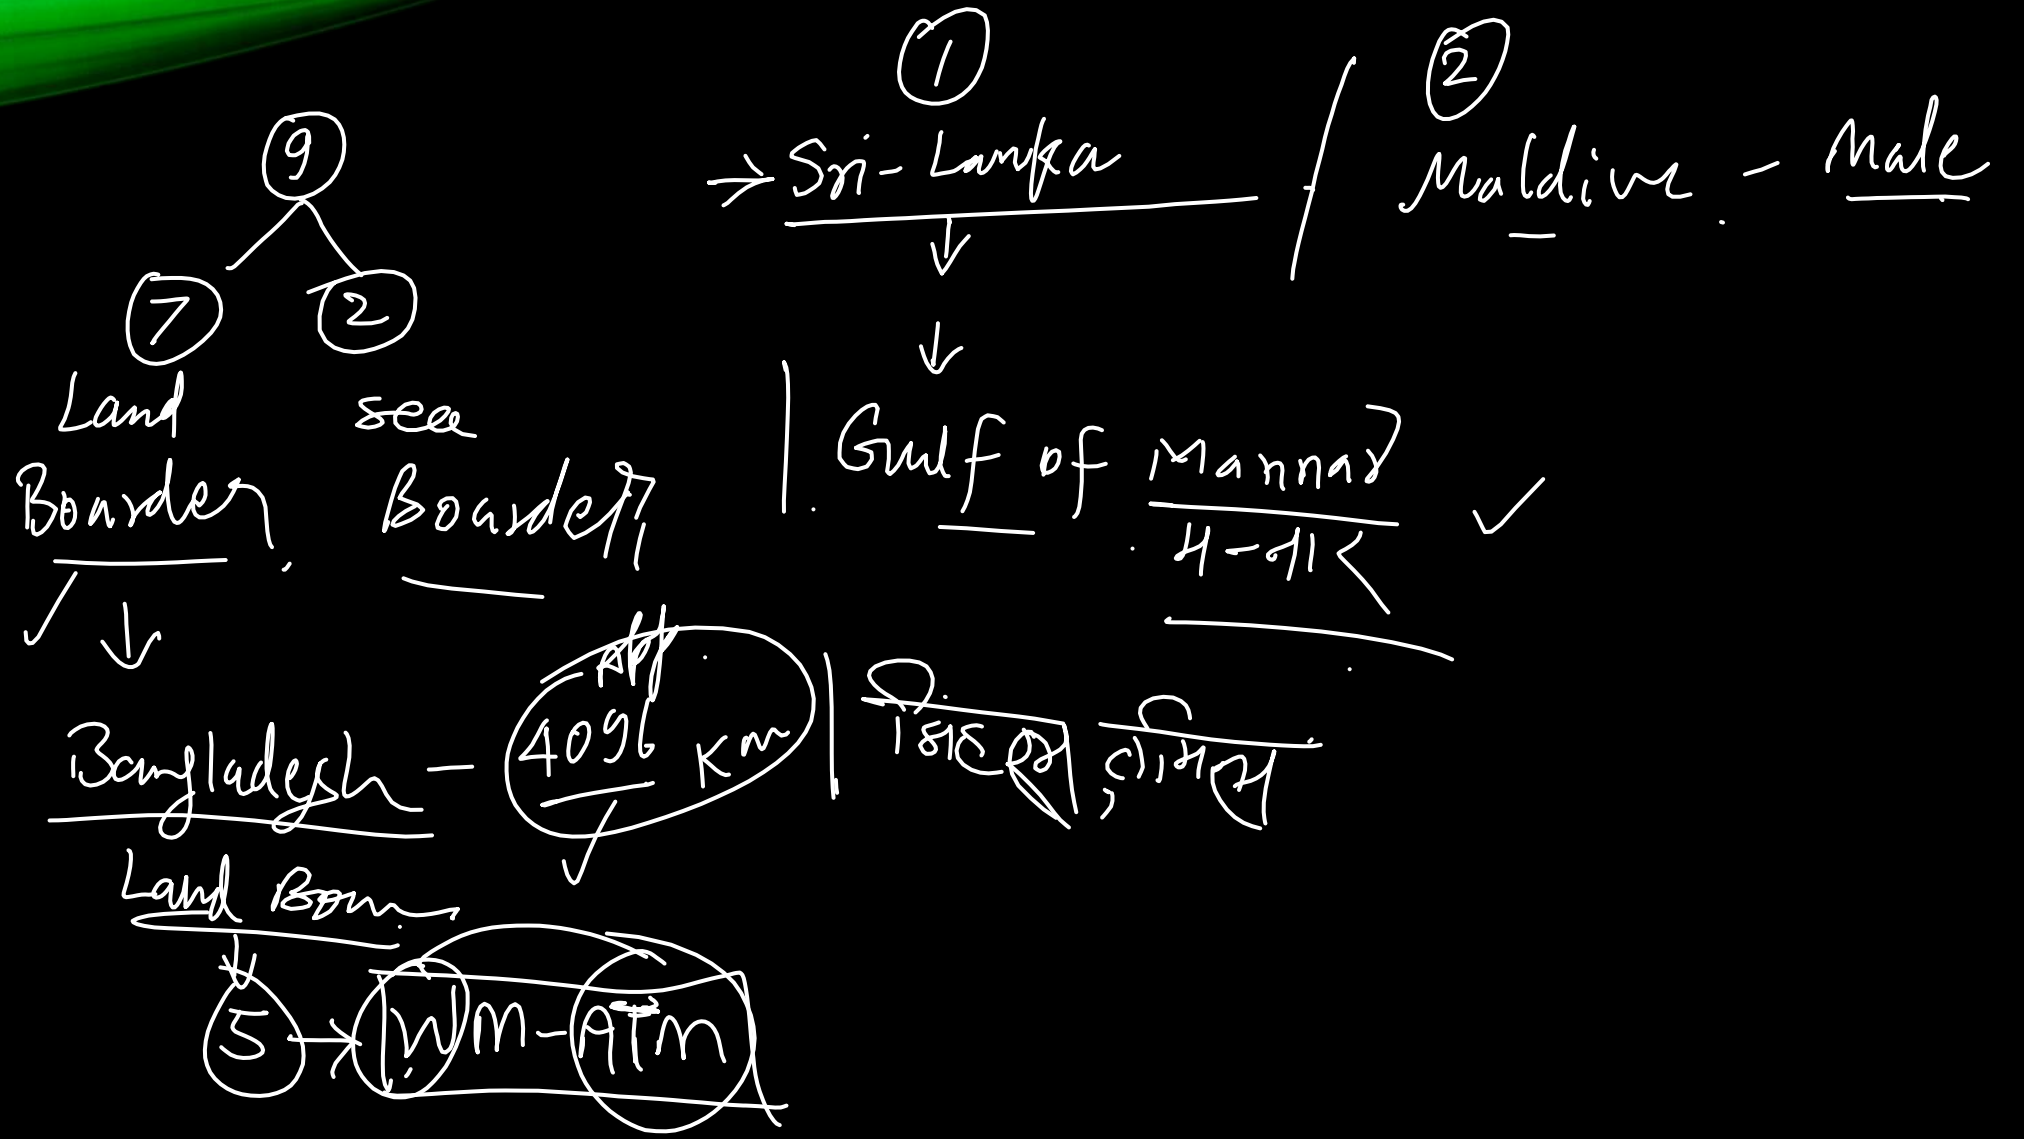 9
7 2
Land sea
Boarder Boarder
Bangladesh - 4096 Km
App
Land
5 → WM-ATM
1
→ Sri-Lanka
Gulf of Mannar
म-नार
सिंहली, तमिल
2
Maldive - Male